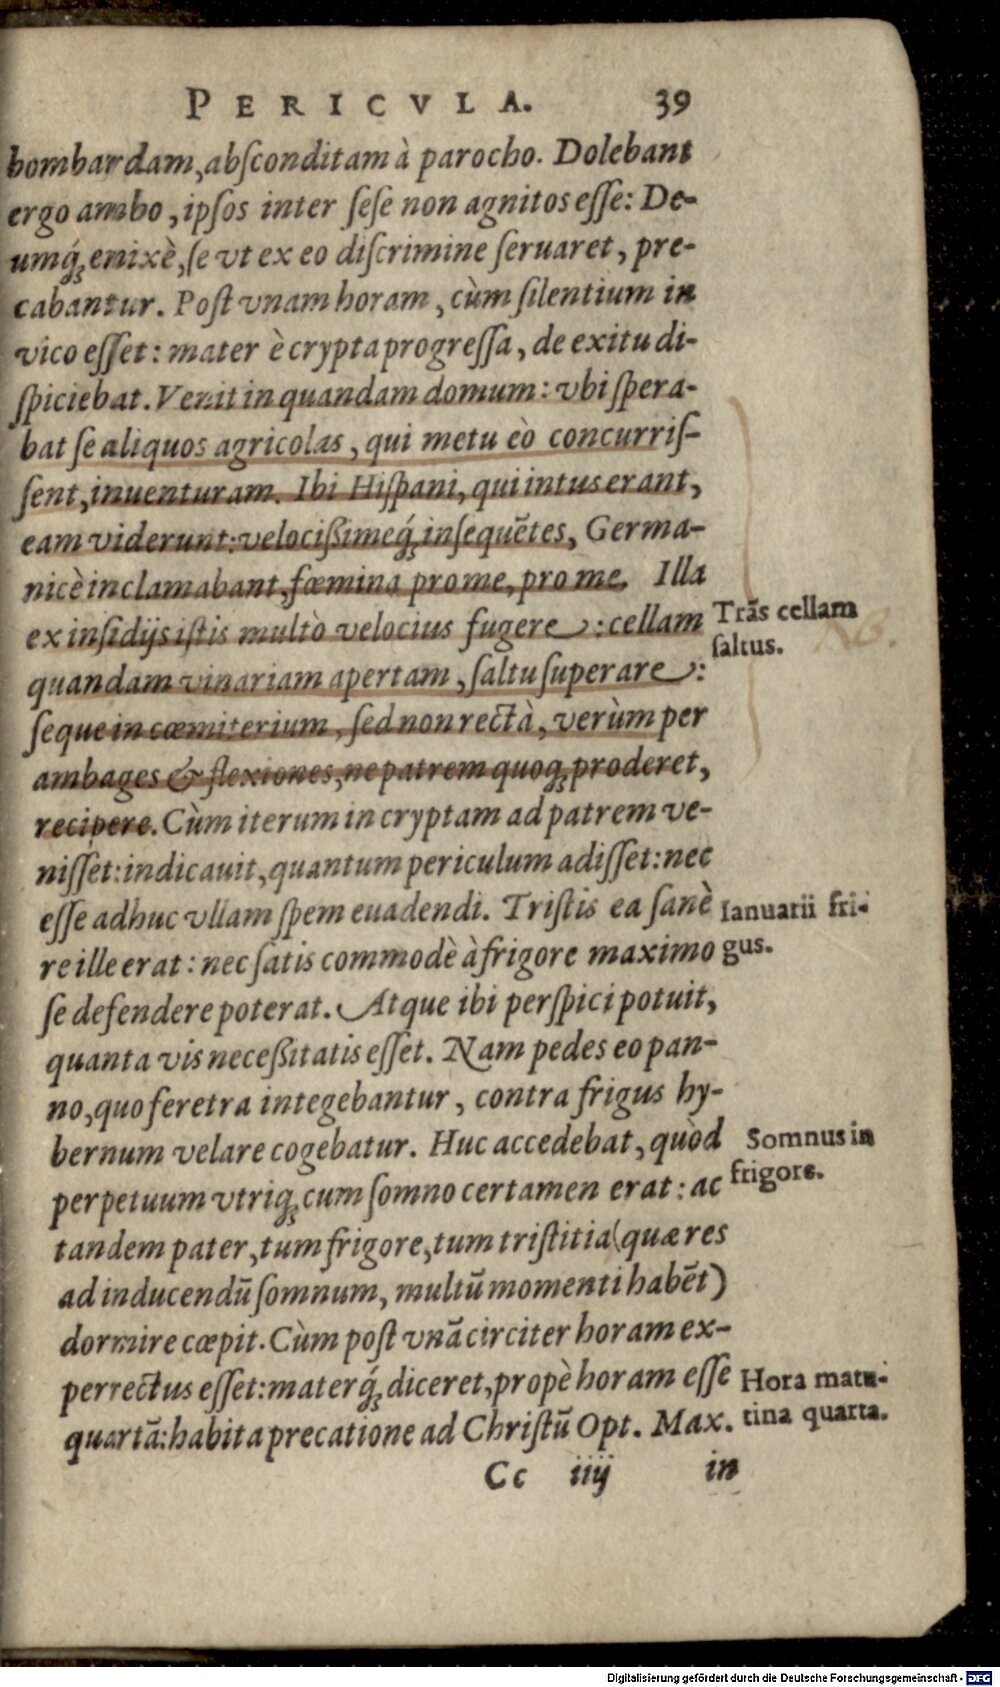 PERICVLA. 39
bombardam, abſconditam à parocho. Dolebant
ergo ambo, ipſos inter ſeſe non agnitos eſſe: De-
umq́ꝫ enixè, ſe vt ex eo diſcrimine ſeruaret, pre-
cabantur. Poſt vnam horam, cùm ſilentium in
vico eſſet: mater è crypta progreſſa, de exitu di-
ſpiciebat. Venit in quandam domum: vbi ſpera-
bat ſe aliquos agricolas, qui metu eò concurriſ-
ſent, inuenturam. Ibi Hiſpani, qui intus erant,
eam viderunt: velocißimeq́ꝫ inſequẽtes, Germa-
nicè inclamabant, fœmina pro me, pro me. Illa
ex inſidijs iſtis multò velocius fugere: cellam
Trãs cellam
quandam vinariam apertam, ſaltu ſuperare:
ſaltus.
NB.
ſeque in cœmiterium, ſed non rectà, verùm per
ambages & flexiones, ne patrem quoqꝫ proderet,
recipere. Cùm iterum in cryptam ad patrem ve-
niſſet: indicauit, quantum periculum adiſſet: nec
eſſe adhuc vllam ſpem euadendi. Triſtis ea ſanè
Ianuarii fri-
re ille erat: nec ſatis commodè à frigore maximo
gus.
ſe defendere poterat. Atque ibi perſpici potuit,
quanta vis neceßitatis eſſet. Nam pedes eo pan-
no, quo feretra integebantur, contra frigus hy-
bernum velare cogebatur. Huc accedebat, quòd
Somnus in
perpetuum vtriqꝫ cum ſomno certamen erat: ac
frigore.
tandem pater, tum frigore, tum triſtitia (quæ res
ad inducendũ ſomnum, multũ momenti habẽt)
dormire cœpit. Cùm poſt vnã circiter horam ex-
perrectus eſſet: materq́ꝫ diceret, propè horam eſſe
Hora matu-
quartã: habita precatione ad Chriſtũ Opt. Max.
tina quarta.
Cc iiij in
Digitalisierung gefördert durch die Deutsche Forschungsgemeinschaft - DFG